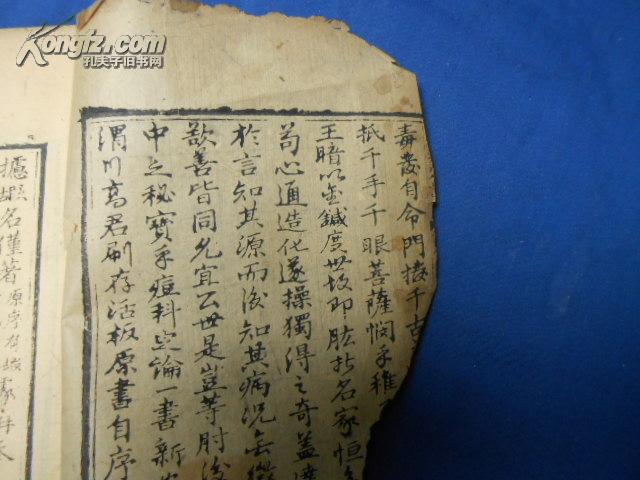 Kongfz.com
孔夫子旧书网
毒發自命門捜千古
抵千手千眼菩薩憫子稚
王暗以金鍼度世故即肱折名家恒
苟心通造化遂操獨得之奇蓋
於言知其源而後知其病況
歆善皆同允宜公世是豈等肘後
中之秘寶乎痘科定論一書新
渭川高君刷存活板原書自序
名僅著原序有